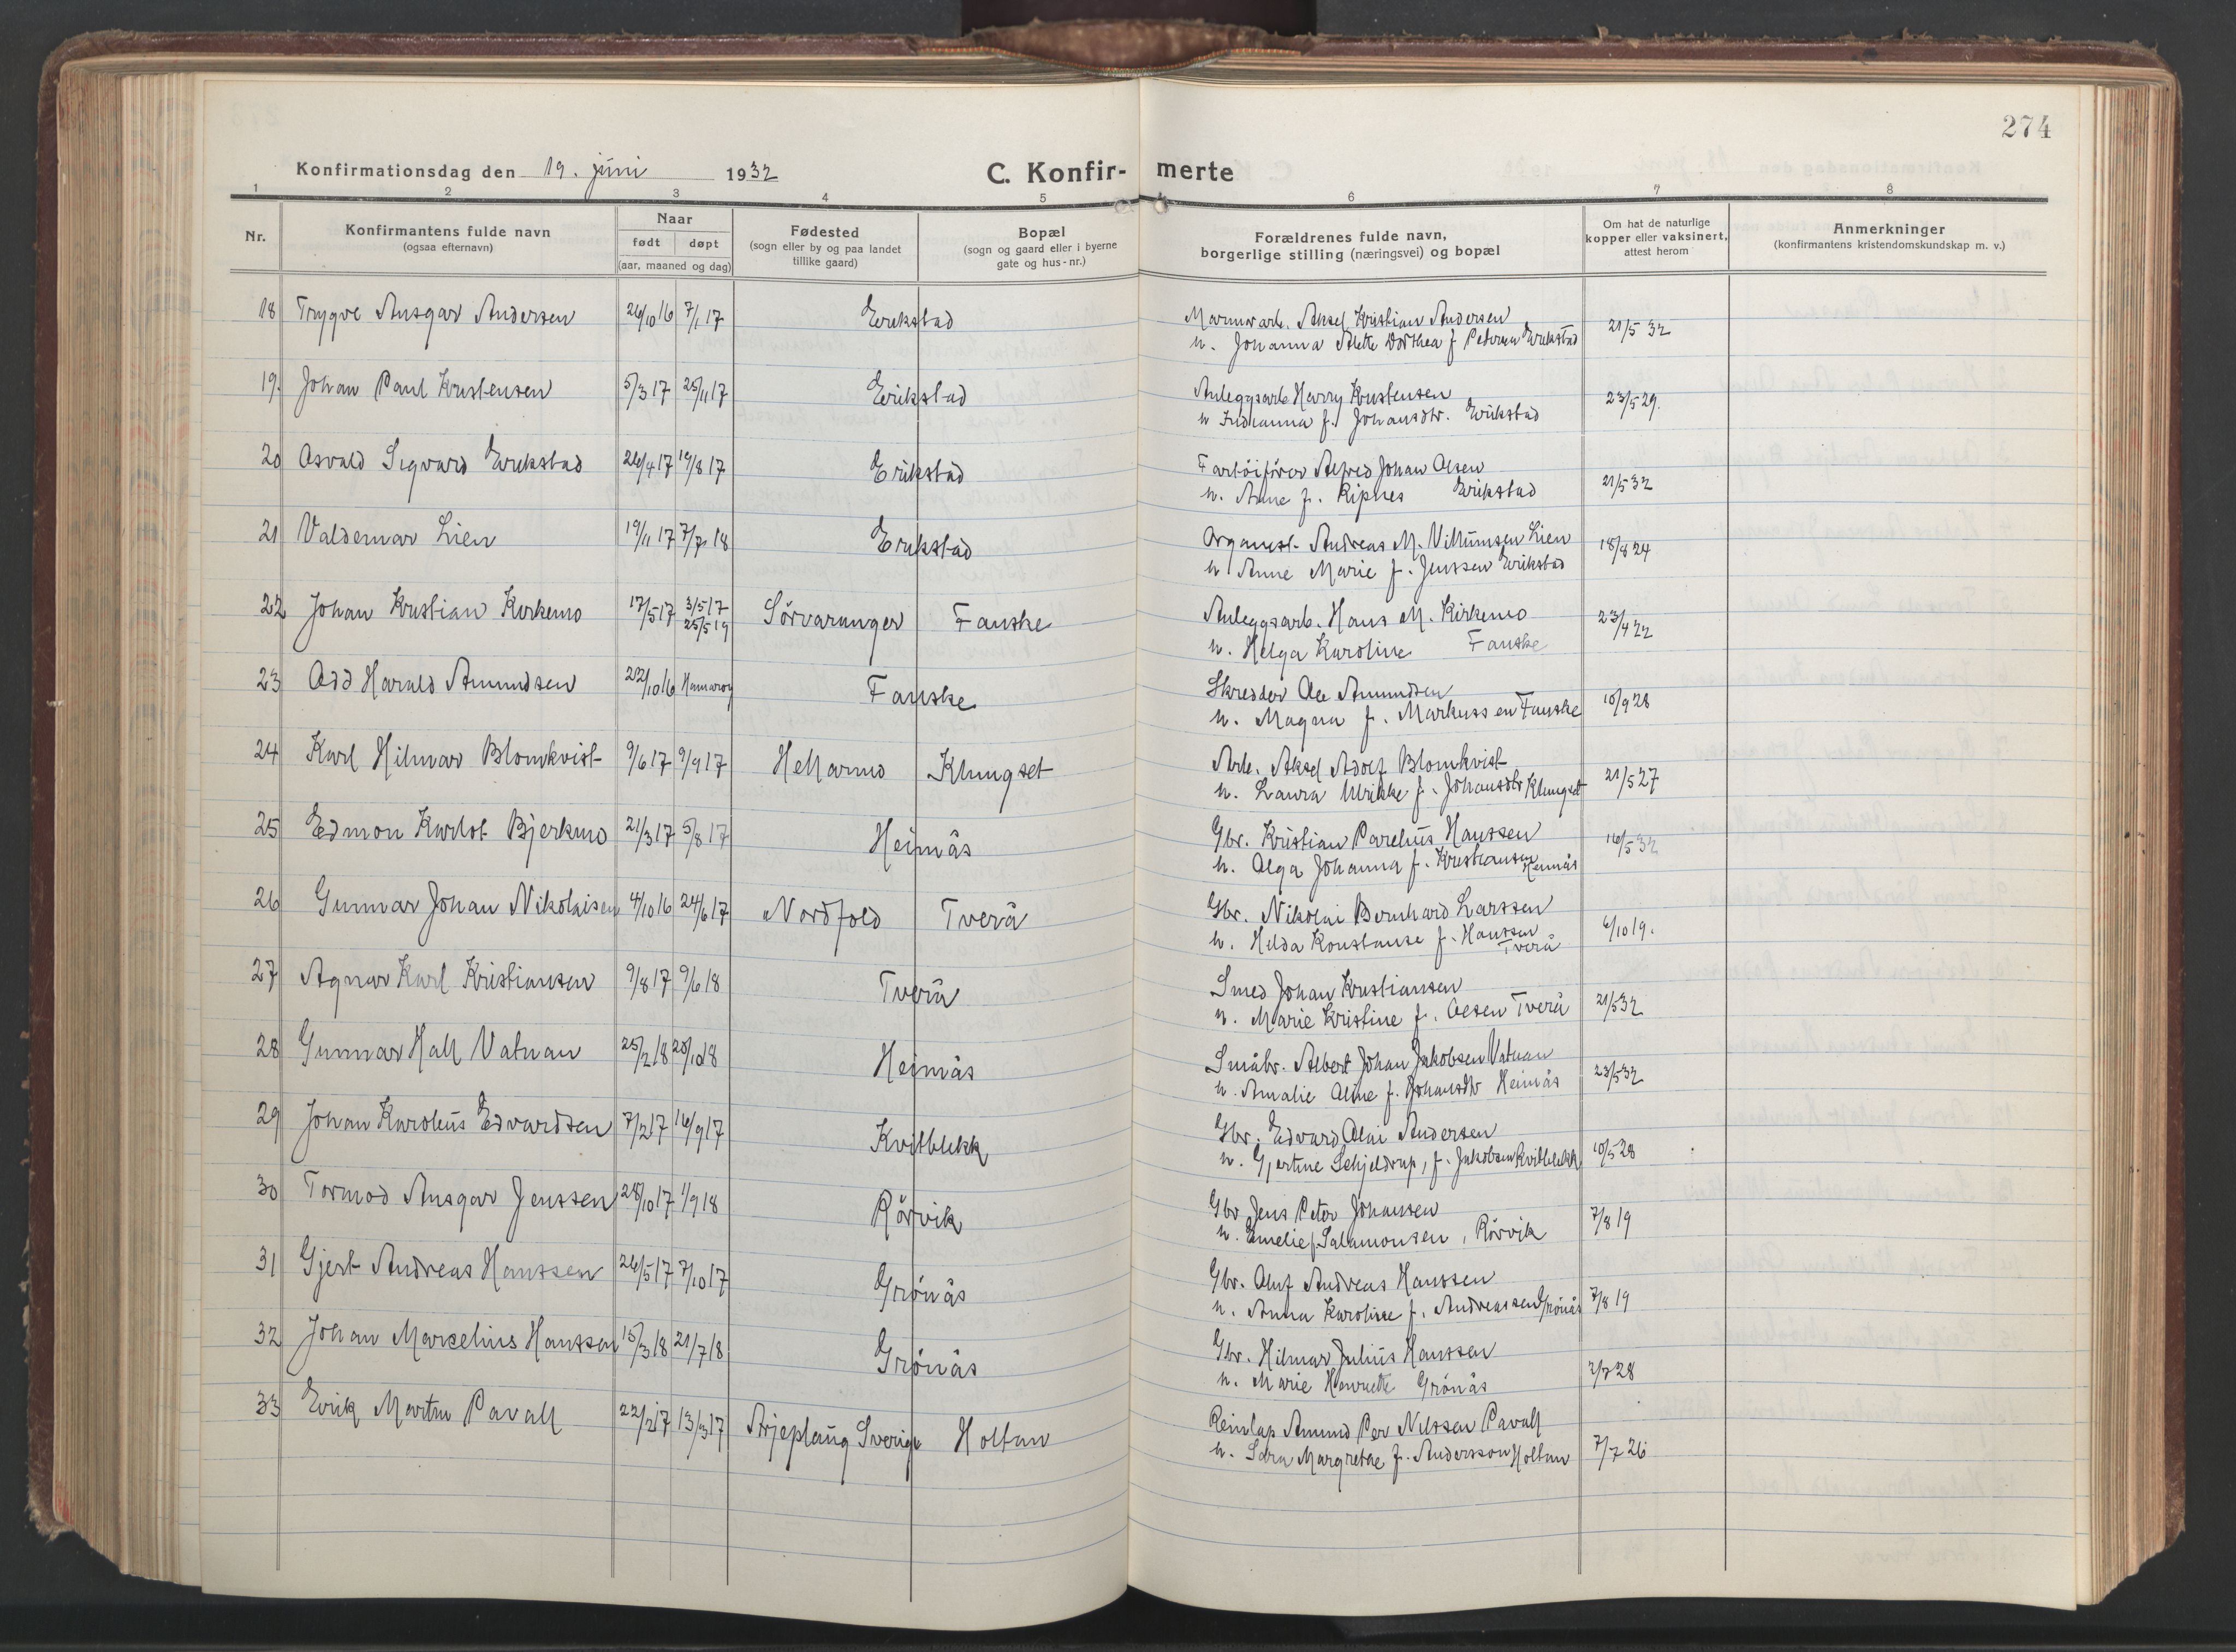 274
Konfirmationsdag den 19. juni 1932 C. Konfir- merte
1 2 3 4 5 6 7 8
Nr. Konfirmantens fulde navn (ogsaa efternavn) Naar født døpt (aar, maaned og dag) Fødested (sogn eller by og paa landet tillike gaard) Bopæl (sogn og gaard eller i byerne gate og hus-nr.) Forældrenes fulde navn, borgerlige stilling (næringsvei) og bopæl Om hat de naturlige kopper eller vaksinert, attest herom Anmerkninger (konfirmantens kristendomskundskap m. v.)
18 Trygve Ansgar Andersen 26/10 16 7/1 17 Erikstad Marmorarb. Aksel Kristian Andersen 21/5 32
h. Johanna Alette Dorthea f Pedersen Erikstad
19. Johan Paul Kristensen 5/3 17 25/11 17 Erikstad Anleggsarb Harry Kristensen 23/5 29.
h Indianna f. Johansdtr. Erikstad
20 Asvald Sigvard Erikstad 26/4 17 19/8 17 Erikstad Fartöiförer Alfred Johan Olsen 21/5 32
h. Anne f. Ripnes Erikstad
21 Valdemar Lien 19/11 17 7/7 18 Erikstad Organist. Andreas M. Villumsen Lien 18/8 24
h Anne Marie f. Jenssen Erikstad
22 Johan Kristian Kirkemo 17/5 17 3/5 17 Sörvaranger Fauske Anleggsarb. Hans M. Kirkemo 23/4 22
25/5 19 h. Helga Karoline Fauske
23 Odd Harald Amundsen 22/10 16 Hamaroy Fauske Skredder Ole Amundsen 10/9 28
h. Magna f. Markussen Fauske
24 Karl Hilmar Blomkvist 9/6 17 9/9 17 Hellarmo Klungset Arb. Aksel Adolf Blomkvist 21/5 27
h. Laura Ulrikke f. Johansdtr Klungset
25 Edmon Karlot Bjerkmo 21/3 17 5/8 17 Heimås Gbr. Kristian Parelius Hanssen 16/5 32
h. Olga Johanna f. Kristiansen Heimås
26 Gunnar Johan Nikolaisen 4/10 16 24/6 17 Nordfold Tverå Gbr. Nikolai Bernhard Larssen 6/10 19.
h. Hilda Konstanse f. Hanssen Tverå
27 Agnar Karl Kristiansen 9/8 17 9/6 18 Tverå Smed Johan Kristiansen 21/5 32
h. Marie Kristine f. Olsen Tverå
28 Gunnar Hall Vatnan 25/2 18 20/10 18 Heimås Småbr. Albert Johan Jakobsen Vatnan 23/5 32
h. Amalie Oline f. Johansdtr Heimås
29 Johan Karolius Edvardsen 7/2 17 16/9 17 Kvitblikk Gbr. Edvard Olai Andersen 10/5 28
h. Gjertine Schjeldrup, f. Jakobsen Kvitblikk
30 Tormod Ansgar Jenssen 28/10 17 1/9 18 Rörvik Gbr Jens Peter Johansen 7/8 19
h. Emelie f Salamonsen, Rörvik
31 Gjert Andreas Hanssen 26/5 17 7/10 17 Grönås Gbr. Oluf Andreas Hanssen 7/8 19
h. Anna Karoline f. Andreassen Grönås
32 Johan Marselius Hanssen 15/3 18 21/7 18 Grönås Gbr. Hilmar Julius Hanssen 2/7 28
h. Marie Henriette Grönås
33 Erik Martin Pavall 22/2 17 13/3 17 Arjeplaug Sverige Holtan Reinlap Amund Per Nilssen Pavall 7/7 26
h. Sara Margrethe f. Andersson Holtan